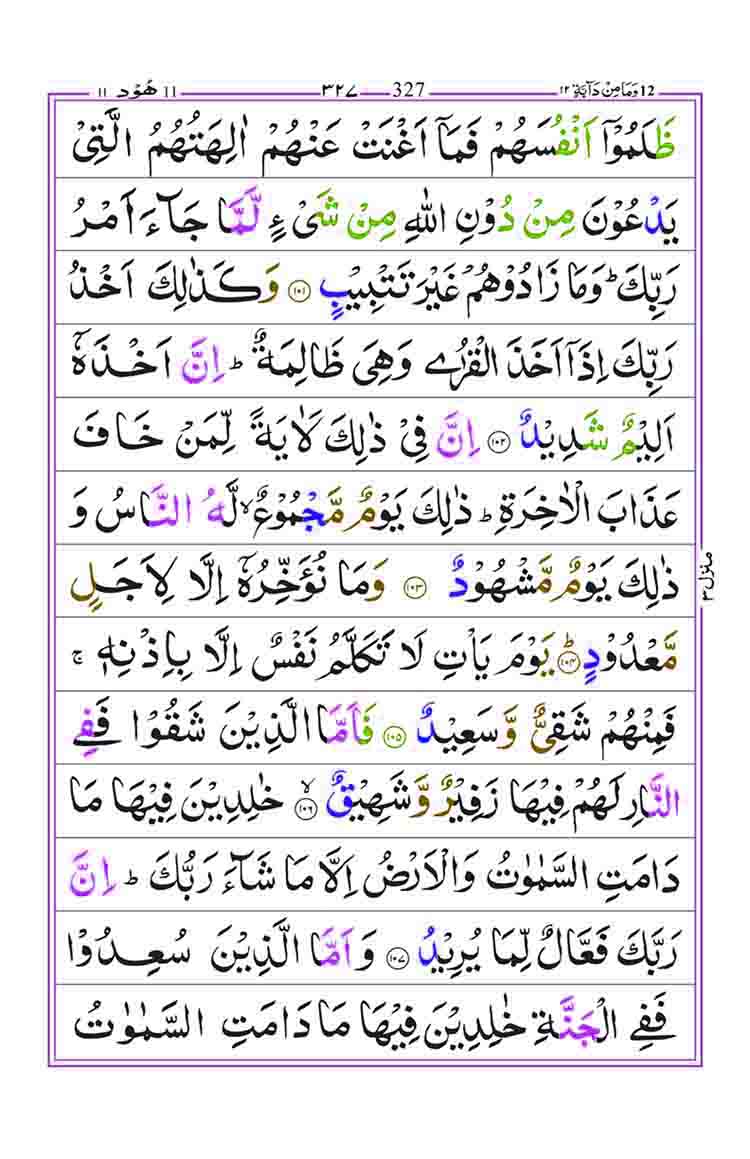 12 وَمَا مِنْ دَآبَّةٍ ١٢ 327 ٣٢٧ 11 هُوْد ١١
ظَلَمُوْۤا اَنْفُسَهُمْ فَمَاۤ اَغْنَتْ عَنْهُمْ اٰلِهَتُهُمُ الَّتِیْ
یَدْعُوْنَ مِنْ دُوْنِ اللّٰهِ مِنْ شَیْءٍ لَّمَّا جَآءَ اَمْرُ
رَبِّكَ ؕ وَمَا زَادُوْهُمْ غَیْرَ تَتْبِیْبٍ ﴿۱۰۱﴾ وَكَذٰلِكَ اَخْذُ
رَبِّكَ اِذَاۤ اَخَذَ الْقُرٰی وَهِیَ ظَالِمَةٌ ؕ اِنَّ اَخْذَهٗۤ
اَلِیْمٌ شَدِیْدٌ ﴿۱۰۲﴾ اِنَّ فِیْ ذٰلِكَ لَاٰیَةً لِّمَنْ خَافَ
عَذَابَ الْاٰخِرَةِ ؕ ذٰلِكَ یَوْمٌ مَّجْمُوْعٌ ۙ لَّهُ النَّاسُ وَ
ذٰلِكَ یَوْمٌ مَّشْهُوْدٌ ﴿۱۰۳﴾ وَمَا نُؤَخِّرُهٗۤ اِلَّا لِاَجَلٍ
مَّعْدُوْدٍ ﴿۱۰۴﴾ؕ یَوْمَ یَاْتِ لَا تَكَلَّمُ نَفْسٌ اِلَّا بِاِذْنِهٖ ۚ
فَمِنْهُمْ شَقِیٌّ وَّسَعِیْدٌ ﴿۱۰۵﴾ فَاَمَّا الَّذِیْنَ شَقُوْا فَفِی
النَّارِ لَهُمْ فِیْهَا زَفِیْرٌ وَّشَهِیْقٌ ﴿۱۰۶﴾ۙ خٰلِدِیْنَ فِیْهَا مَا
دَامَتِ السَّمٰوٰتُ وَالْاَرْضُ اِلَّا مَا شَآءَ رَبُّكَ ؕ اِنَّ
رَبَّكَ فَعَّالٌ لِّمَا یُرِیْدُ ﴿۱۰۷﴾ وَاَمَّا الَّذِیْنَ سُعِدُوْا
فَفِی الْجَنَّةِ خٰلِدِیْنَ فِیْهَا مَا دَامَتِ السَّمٰوٰتُ
منزل ٣